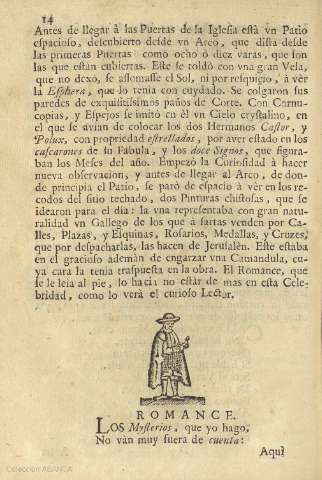 14
Antes de llegar à las Puertas de la Iglesia està vn Patio
espacioso, descubierto desde vn Arco, que dista desde
las primeras Puertas como ocho ò diez varas, que son
las que estàn cubiertas. Este se toldò con vna gran Vela,
que no dexò, se assomasse el Sol, ni por resquicio, à vèr
la Esphera, que lo tenia con cuydado. Se colgaron sus
paredes de exquisitissimos paños de Corte. Con Cornu-
copias, y Espejos se imitò en èl vn Cielo crystalino, en
el que se avian de colocar los dos Hermanos Castor, y
Polux, con propriedad estrellados, por aver estado en los
cascarones de su Fabula, y los doce Signos, que figura-
ban los Meses del año. Empezò la Curiosidad à hacer
nueva observacion, y antes de llegar al Arco, de don-
de principia el Patio, se parò de espacio à vèr en los reco-
dos del sitio techado, dos Pinturas chistosas, que se
idearon para el dia: la vna representaba con gran natu-
ralidad vn Gallego de los que à sartas venden por Ca-
lles, Plazas, y Esquinas, Rosarios, Medallas, y Cruzes,
que por despacharlas, las hacen de Jerusalèn. Este estaba
en el gracioso ademàn de engarzar vna Camandula, cu-
ya cara la tenia traspuesta en la obra. El Romance, que
se le leìa al pie, lo hacia no estàr de mas en esta Cele-
bridad, como lo verà el curioso Lector.
ROMANCE.
LOS Mysterios, que yo hago,
No vàn muy fuera de cuenta:
Aquì
Colección ABANCA